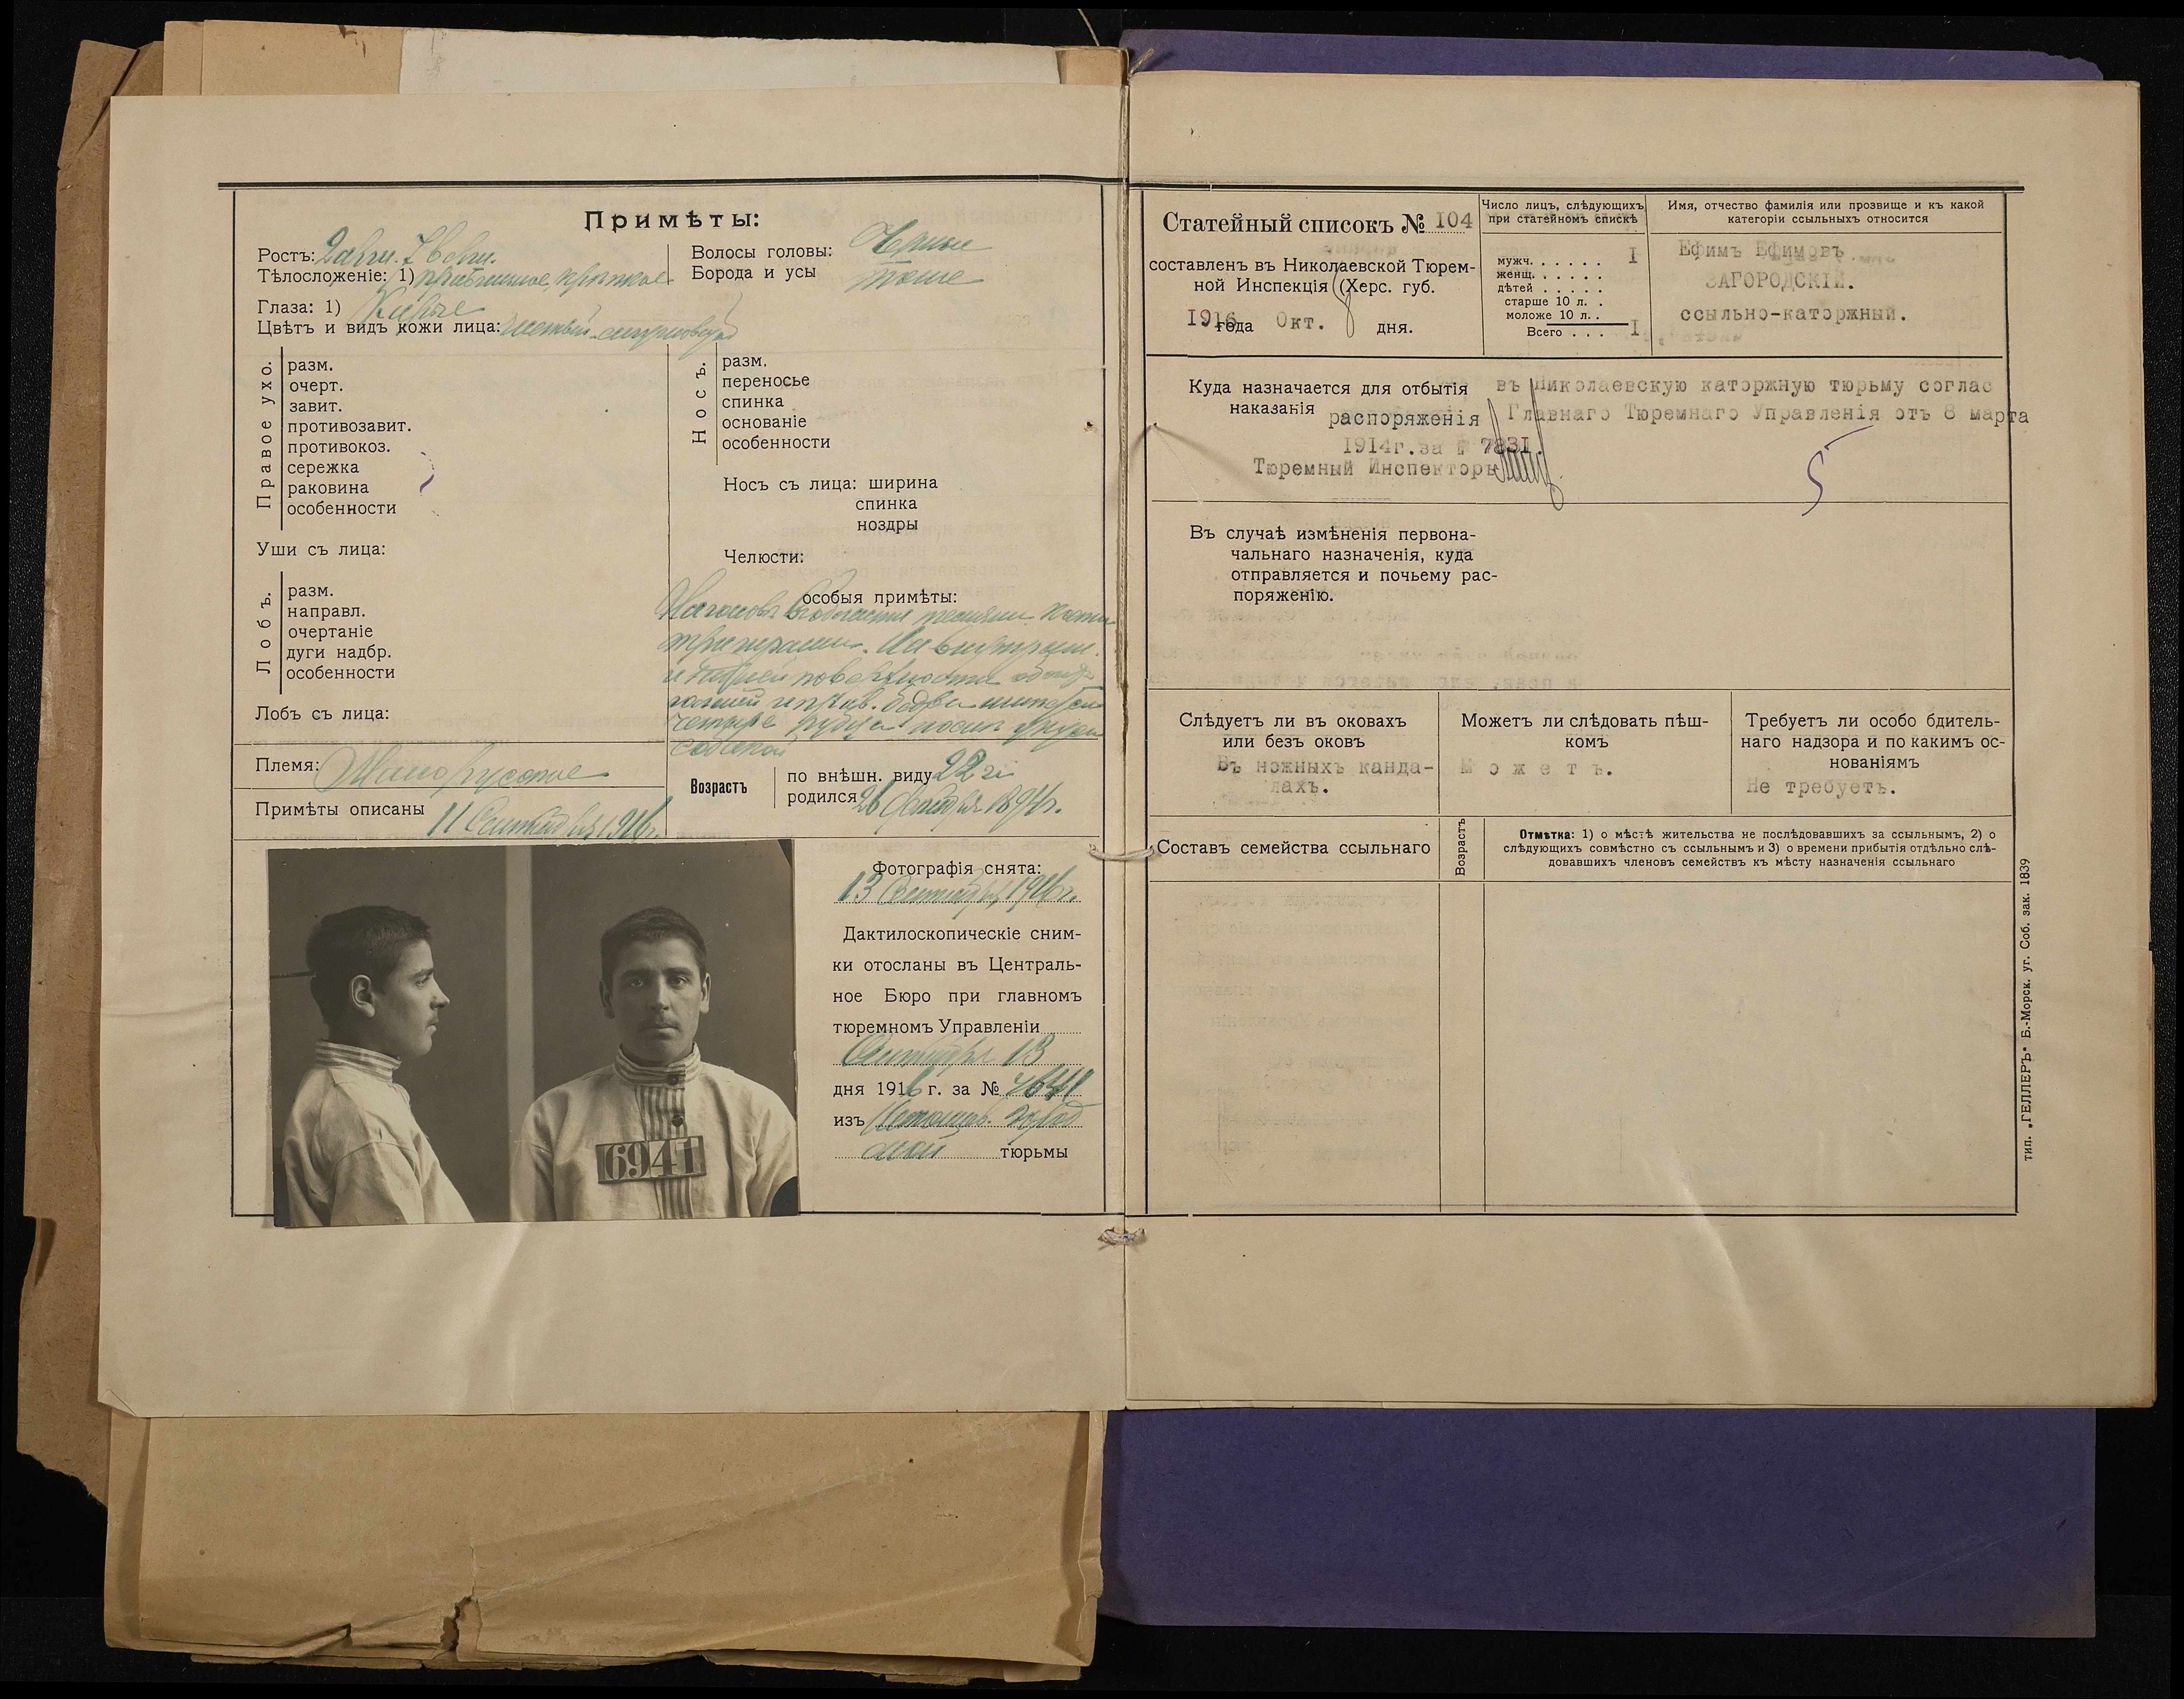 Примѣты:
Ростъ: 2 арш. 7 верш.
Тѣлосложеніе: 1)
Глаза: 1) Карые
Цвѣтъ и видъ кожи лица:
Волосы головы: Черные
Борода и усы тоже
Правое ухо.
разм.
очерт.
завит.
противозавит.
противокоз.
сережка
раковина
особенности
Носъ.
разм.
переносье
спинка
основаніе
особенности
Носъ съ лица: ширина
спинка
ноздры
Уши съ лица:
Челюсти:
Лобъ.
разм.
направл.
очертаніе
дуги надбр.
особенности
Лобъ съ лица:
особыя примѣты:
четыре рубца
Племя: Малорусское
Примѣты описаны 11 Сентября 1916г.
Возрастъ
по внѣшн. виду 22 г.
родился 26 1894г.
Фотографія снята:
13 Сентября 1916г.
Дактилоскопическіе сним-
ки отосланы въ Централь-
ное Бюро при главномъ
тюремномъ Управленіи
Сентября 13
дня 1916 г. за №
изъ
тюрьмы
6941
Статейный списокъ № I04
составленъ въ Николаевской Тюрем-
ной Инспекція (Херс. губ.
I9I6 года Окт. 8 дня.
Число лицъ, слѣдующихъ
при статейномъ спискѣ
мужч. . . . . . I
женщ. . . . . .
дѣтей . . . . .
старше 10 л. .
моложе 10 л. .
Всего . . . I
Имя, отчество фамилія или прозвище и къ какой
категоріи ссыльныхъ относится
Ефимъ Ефимовъ
ЗАГОРОДСКІЙ.
ссыльно-каторжный.
Куда назначается для отбытія въ Николаевскую каторжную тюрьму соглас
наказанія распоряженія Главнаго Тюремнаго Управленія отъ 8 марта
I9I4г. за № 783I.
Тюремный Инспекторъ
5
Въ случаѣ измѣненія первона-
чальнаго назначенія, куда
отправляется и почьему рас-
поряженію.
Слѣдуетъ ли въ оковахъ
или безъ оковъ
Въ ножныхъ канда-
лахъ.
Можетъ ли слѣдовать пѣш-
комъ
Можетъ.
Требуетъ ли особо бдитель-
наго надзора и по какимъ ос-
нованіямъ
Не требуетъ.
Составъ семейства ссыльнаго
Возрастъ
Отмѣтка: 1) о мѣстѣ жительства не послѣдовавшихъ за ссыльнымъ, 2) о
слѣдующихъ совмѣстно съ ссыльнымъ и 3) о времени прибытія отдѣльно слѣ-
довавшихъ членовъ семействъ къ мѣсту назначенія ссыльнаго
тип. „ГЕЛЛЕРЪ“ Б.-Морск. уг. Соб. зак. 1839